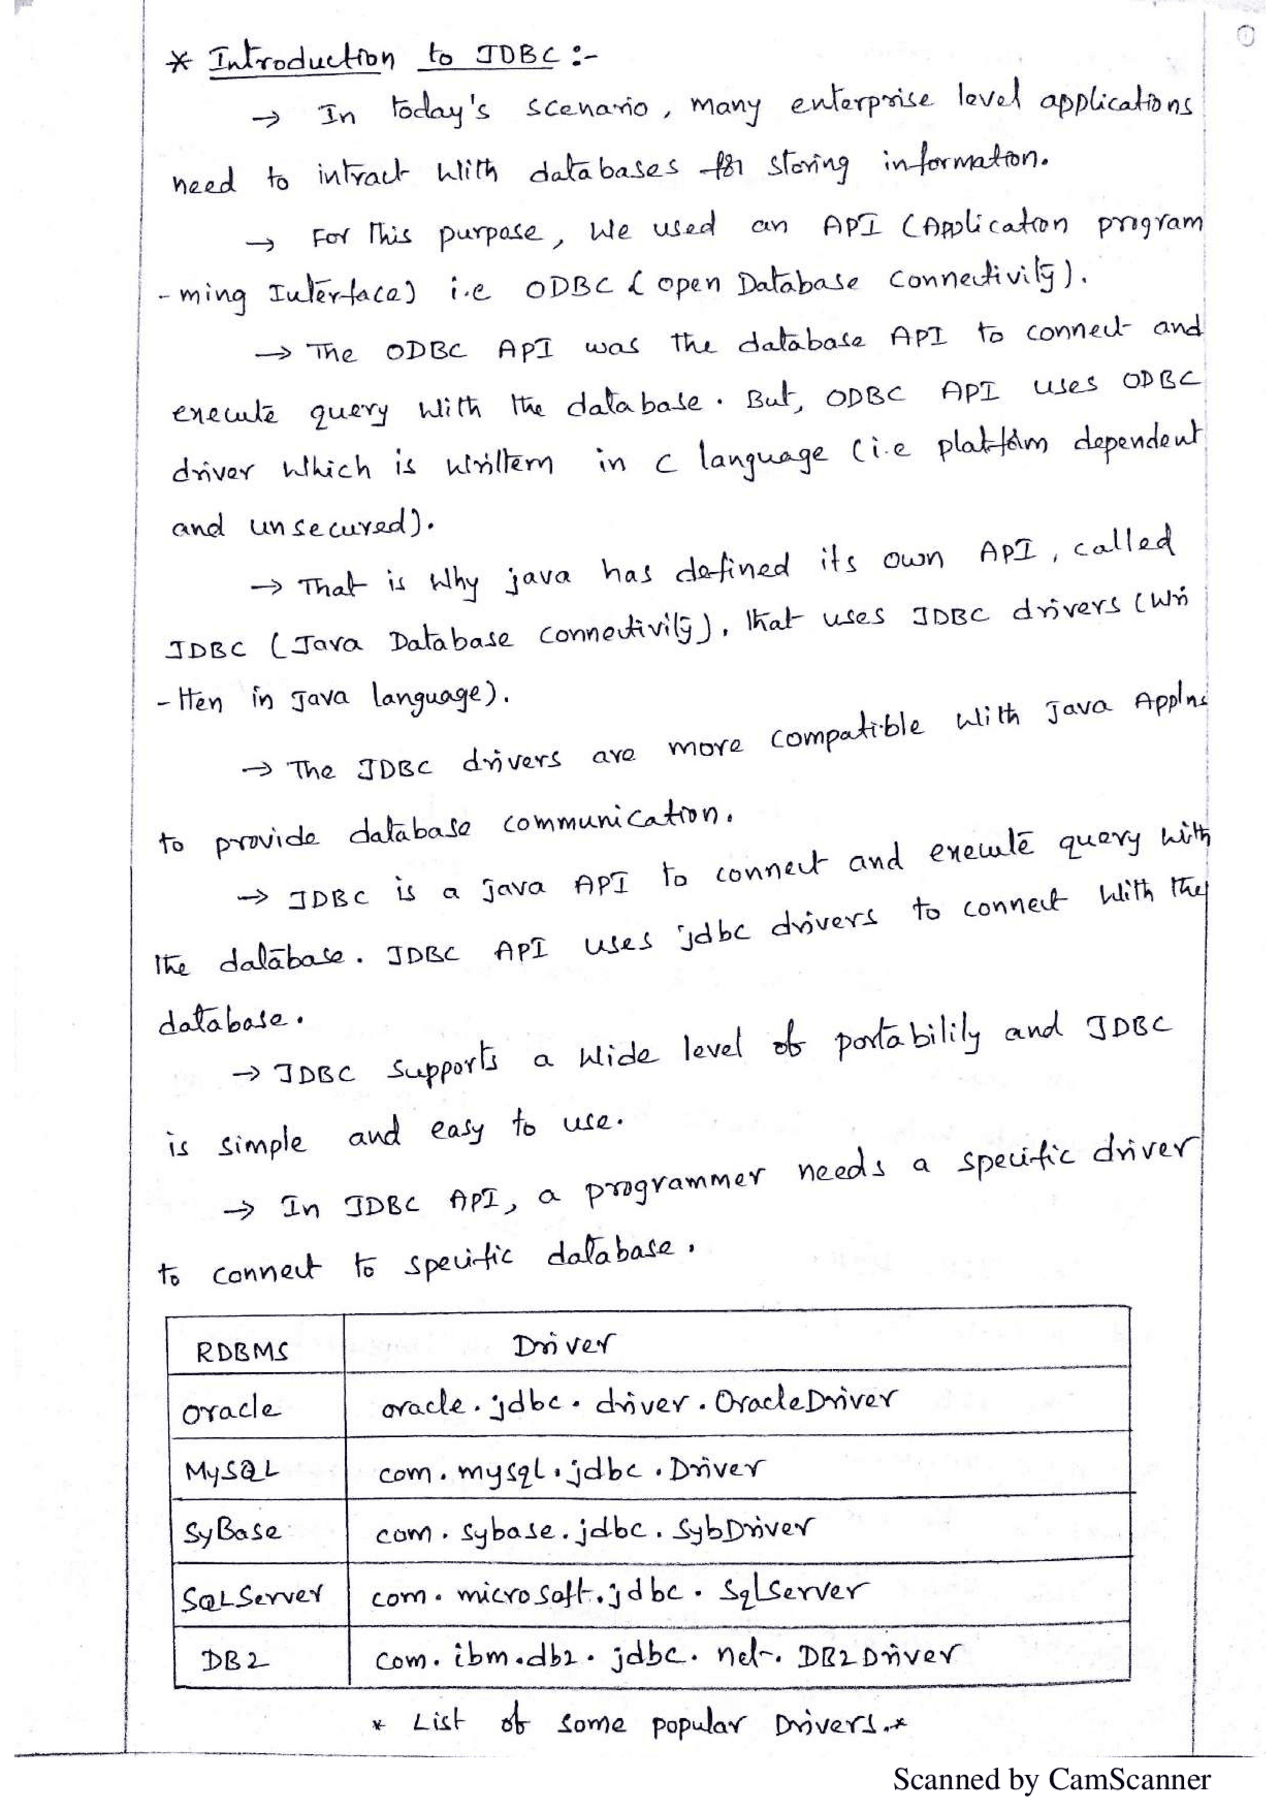 ①
* Introduction to JDBC :-
→ In today's scenario, many enterprise level applications
need to intract with databases for storing information.
→ For this purpose, we used an API (Application program
-ming Interface) i.e ODBC (open Database connectivity).
→ The ODBC API was the database API to connect and
execute query with the database. But, ODBC API uses ODBC
driver which is writtern in c language (i.e platform dependent
and unsecured).
→ That is why java has defined its own API, called
JDBC (Java Database connectivity), that uses JDBC drivers (wri
-tten in Java language).
→ The JDBC drivers are more compatible with Java Applns
to provide database communication.
→ JDBC is a java API to connect and execute query with
the database. JDBC API uses jdbc drivers to connect with the
database.
→ JDBC supports a wide level of portability and JDBC
is simple and easy to use.
→ In JDBC API, a programmer needs a specific driver
to connect to specific database.
RDBMS Driver
oracle oracle.jdbc.driver.OracleDriver
MySQL com.mysql.jdbc.Driver
SyBase com.sybase.jdbc.SybDriver
SQLServer com.microsoft.jdbc.SqlServer
DB2 com.ibm.db2.jdbc.net.DB2Driver
* List of some popular Drivers.*
Scanned by CamScanner